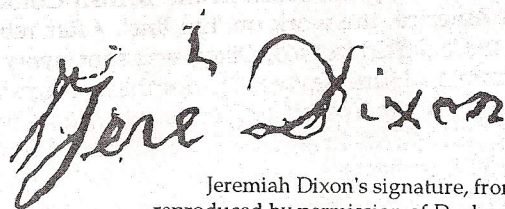 Jere Dixon
Jeremiah Dixon's signature, from
reproduced by permission of